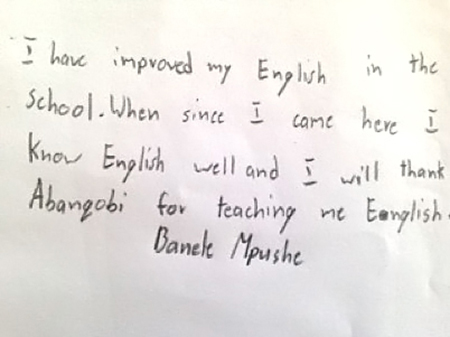 I have improved my English in the
school. When since I came here I
Know English well and I will thank
Abangobi for teaching me Eonglish.
Banele Mpushe